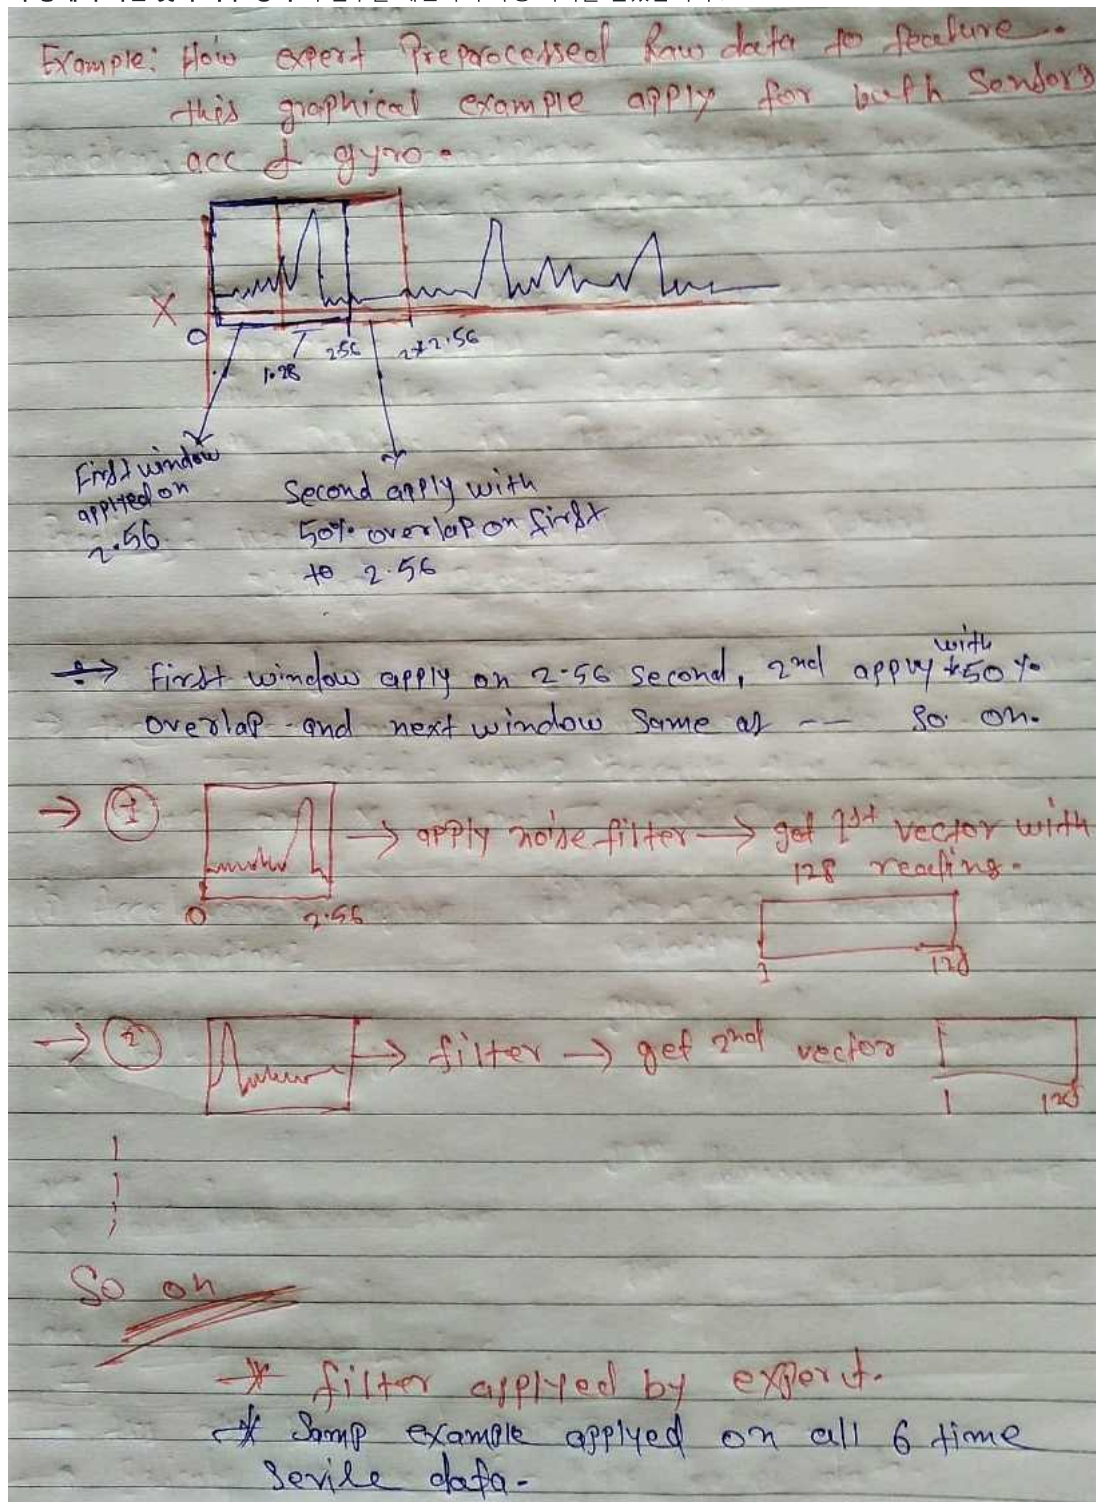 Example: How expert Preprocessed Raw data to feature..
this graphical example apply for buth Sensors
acc & gyro.
X
0
1.28
256
2*2.56
First window
applyed on
2.56
Second apply with
50% overlap on first
to 2.56
First window apply on 2.56 second, 2nd apply with 50%
overlap and next window same as -- so on.
→ 1 → apply noise filter → get 1st vector with
128 reading.
0 2.56
1 128
→ 2 → filter → get 2nd vector
1 128
So on
* filter applyed by expert.
* Samp example applyed on all 6 time
Serile data-